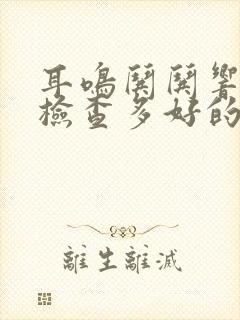 耳鳴閧閧響
檢查多好的
離生離滅